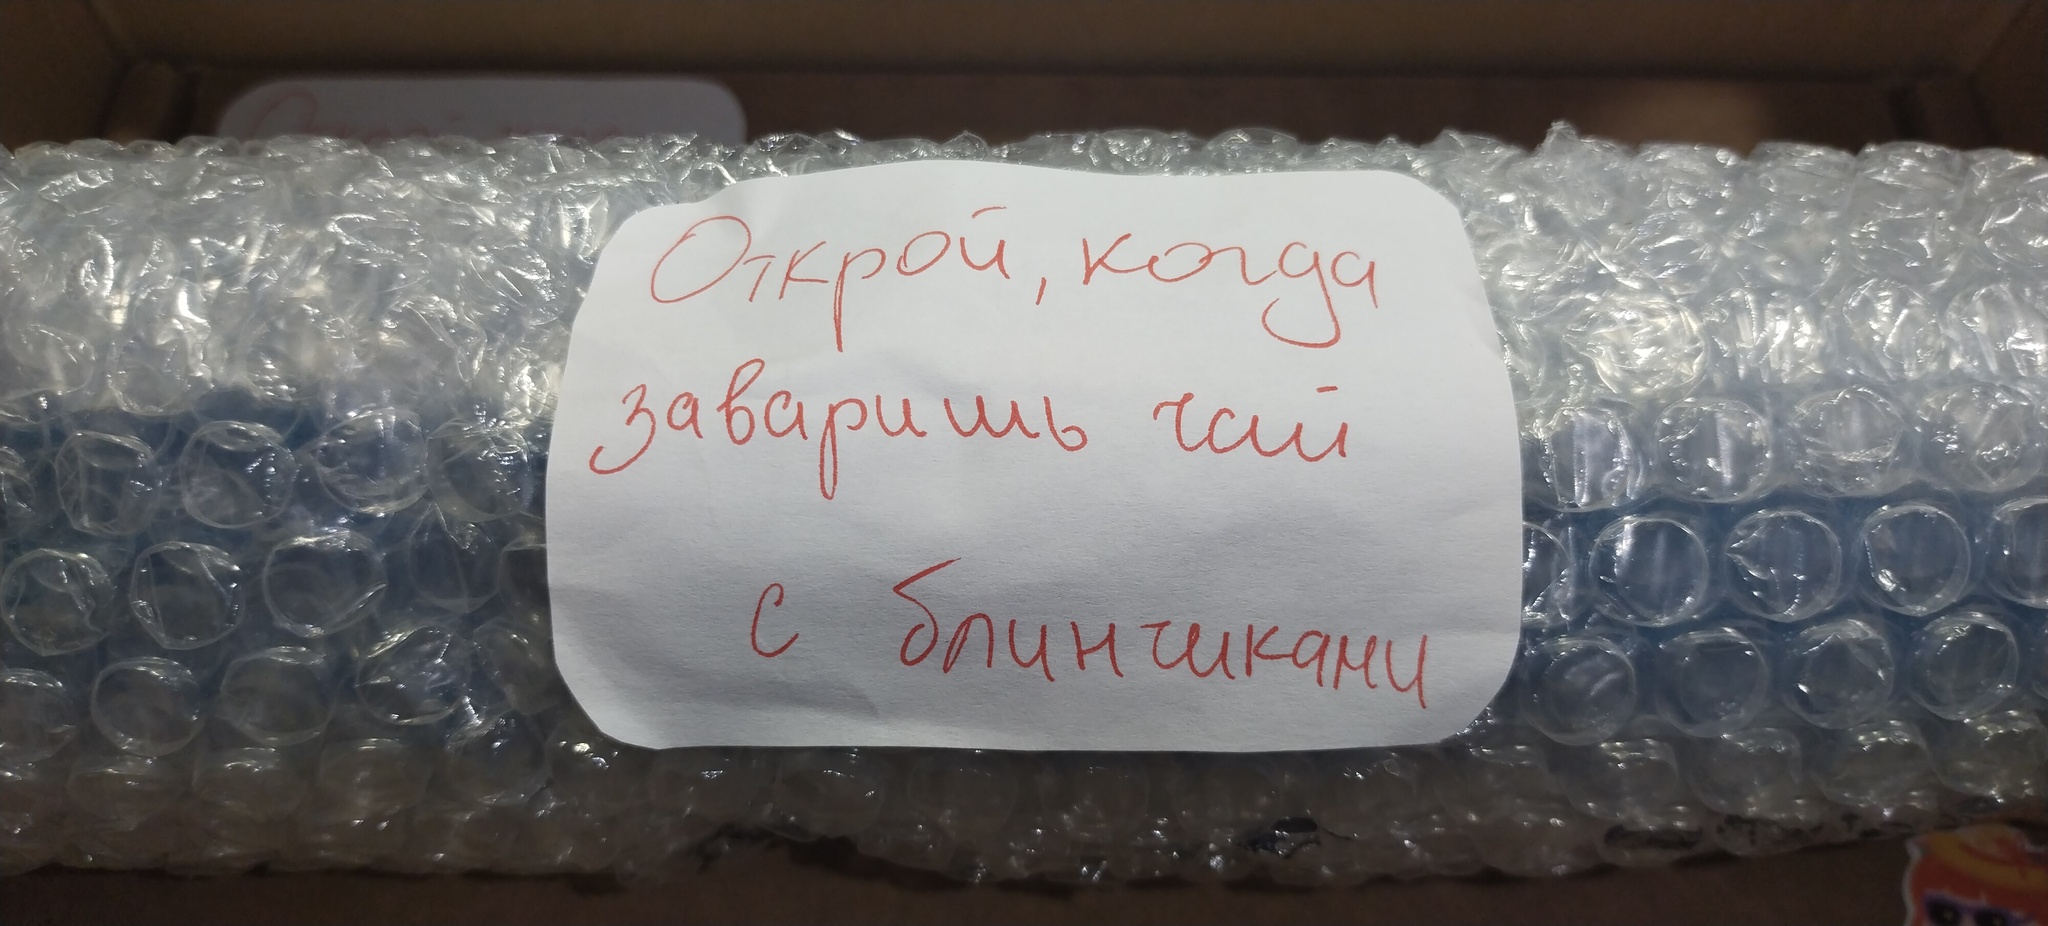 Открой, когда
заваришь чай
с блинчиками